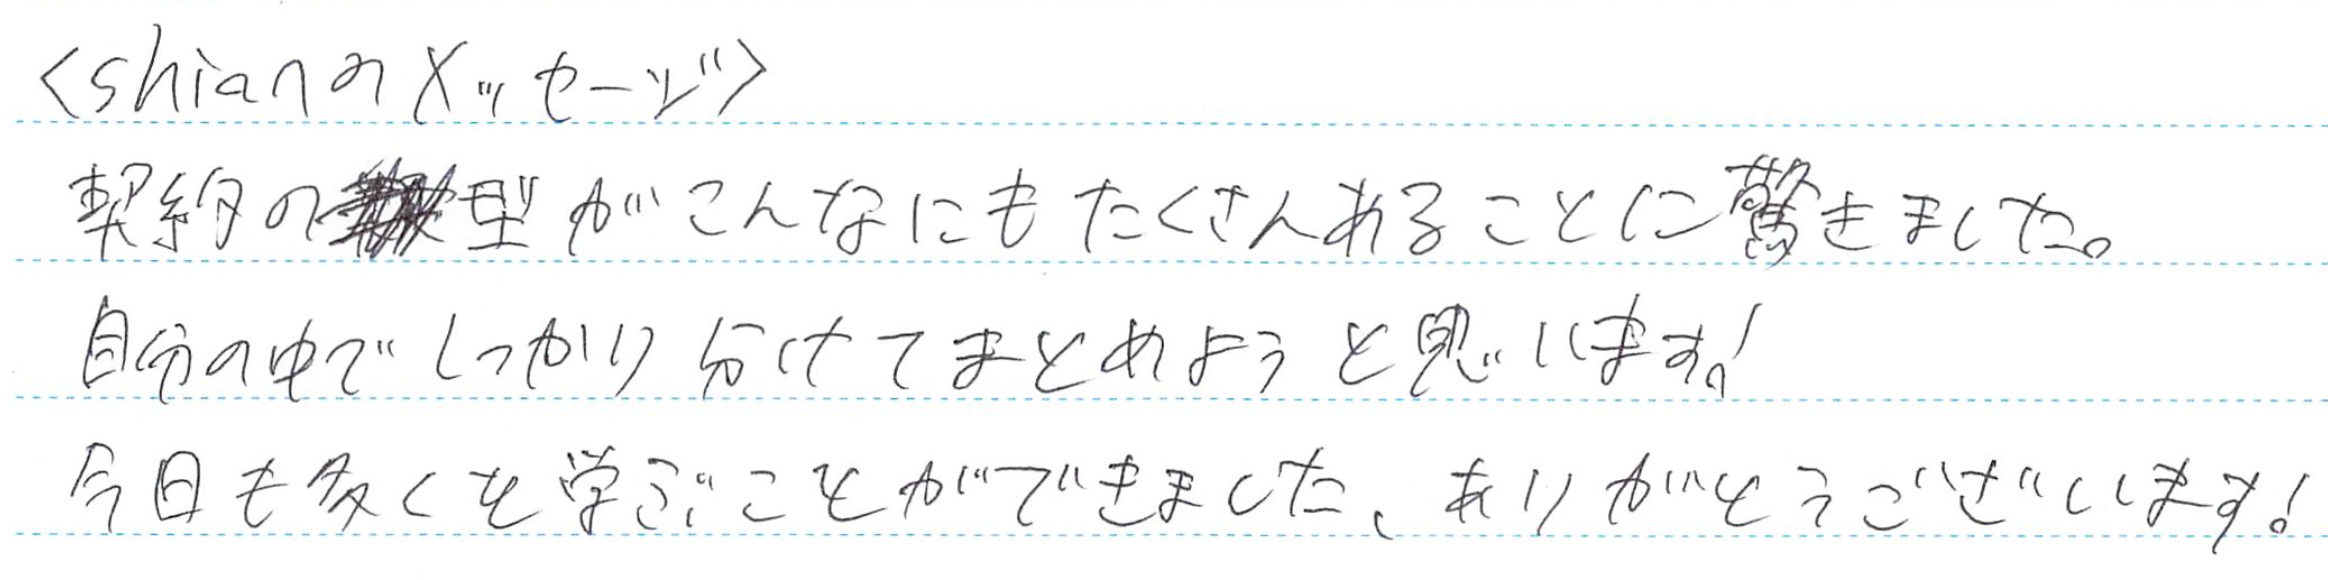 <shianのメッセージ>
契約の型がこんなにもたくさんあることに驚きました。
自分の中でしっかり分けてまとめようと思います!
今日も多くを学ぶことができました、ありがとうございます!